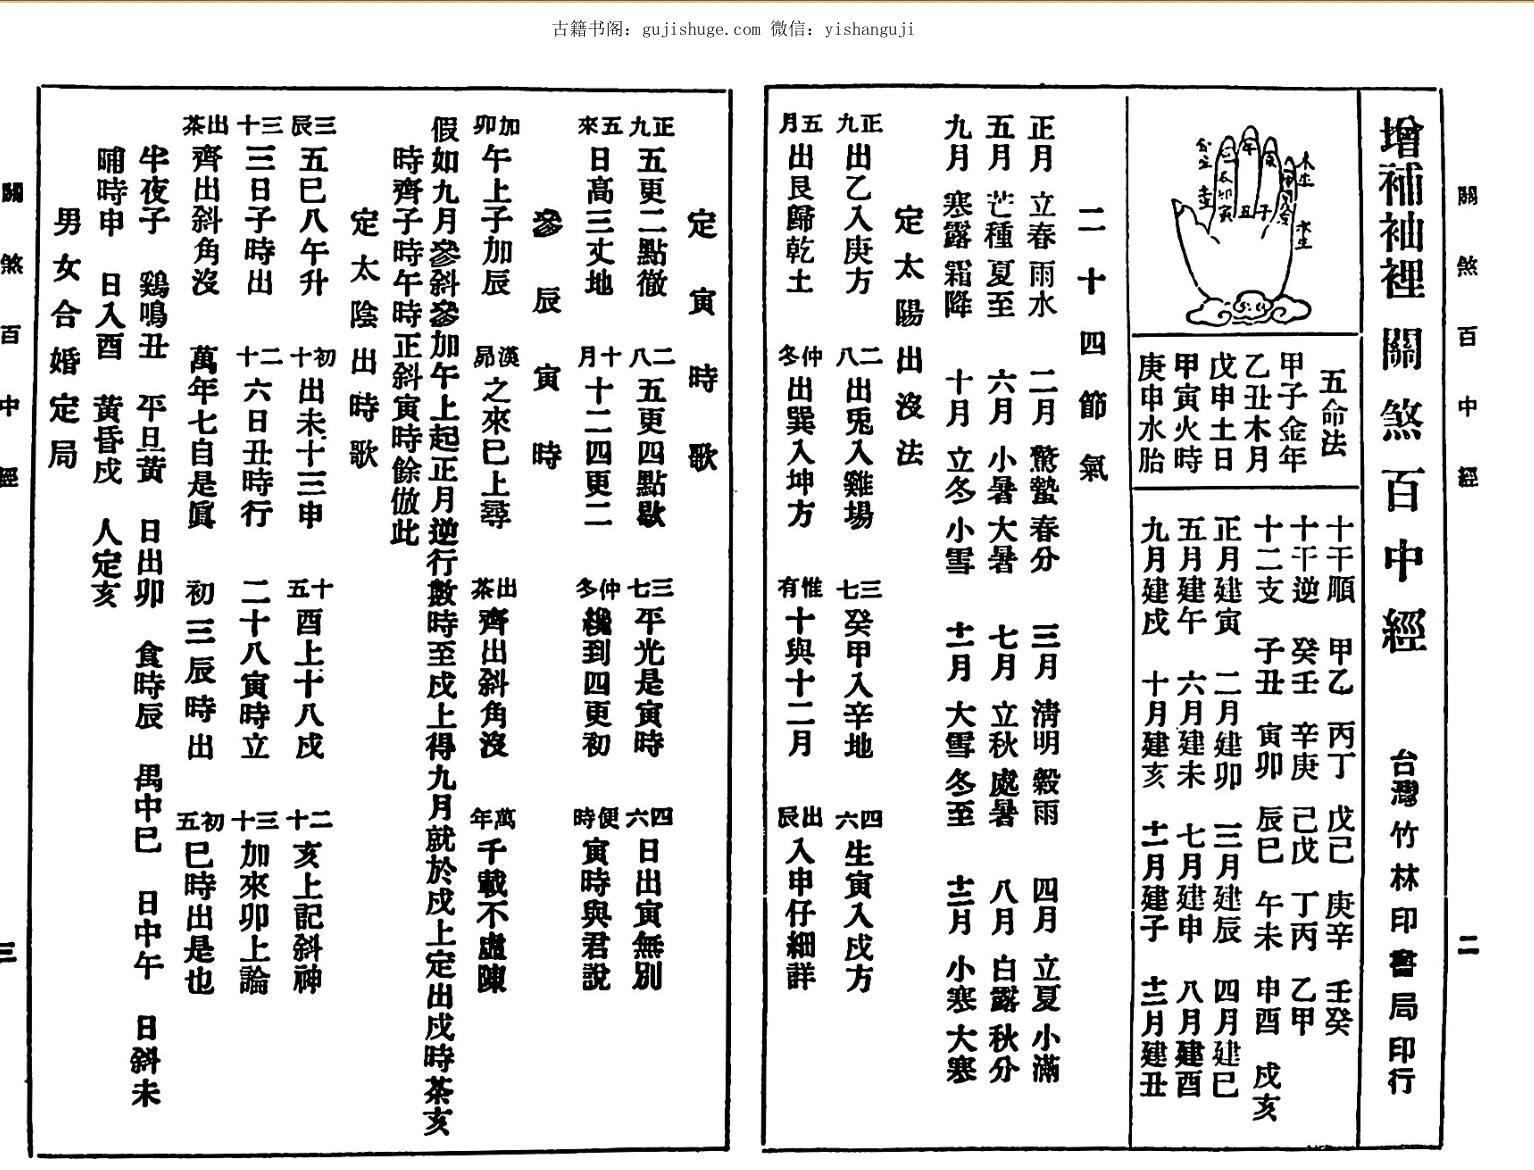 古籍书阁: gujishuge.com 微信: yishanguji
關煞百中經
二
增補袖裡關煞百中經 台灣竹林印書局印行
五命法
甲子金年
乙丑木月
戊申土日
甲寅火時
庚申水胎
十干順 甲乙 丙丁 戊己 庚辛 壬癸
十干逆 癸壬 辛庚 己戊 丁丙 乙甲
十二支 子丑 寅卯 辰巳 午未 申酉 戌亥
正月建寅 二月建卯 三月建辰 四月建巳
五月建午 六月建未 七月建申 八月建酉
九月建戌 十月建亥 十一月建子 十二月建丑
二十四節氣
正月 立春 雨水 二月 驚蟄 春分 三月 清明 穀雨 四月 立夏 小滿
五月 芒種 夏至 六月 小暑 大暑 七月 立秋 處暑 八月 白露 秋分
九月 寒露 霜降 十月 立冬 小雪 十一月 大雪 冬至 十二月 小寒 大寒
定太陽出沒法
正九出乙入庚方 二八出兎入雞場 三七癸甲入辛地 四六生寅入戌方
五月出艮歸乾土 仲冬出巽入坤方 惟有十與十二月 出辰入申仔細詳
定寅時歌
正九五更二點徹 二八五更四點歇 三七平光是寅時 四六日出寅無別
五來日高三丈地 十月十二四更二 仲冬纔到四更初 便時寅時與君說
參辰寅時
加卯午上子加辰 漢昴之來巳上尋 出茶齊出斜角沒 萬年千載不虛陳
假如九月參斜參加午上起正月逆行數時至戌上得九月就於戌上定出戌時茶亥
時齊子時午時正斜寅時餘倣此
定太陰出時歌
三辰五巳八午升 初十出未十三申 十五酉上十八戌 二十亥上記斜神
三十三日子時出 二十六日丑時行 二十八寅時立 三十加來卯上論
出茶齊出斜角沒 萬年七自是眞 初三辰時出 初五巳時出是也
半夜子 鷄鳴丑 平旦黃 日出卯 食時辰 禺中巳 日中午 日斜未
晡時申 日入酉 黃昏戌 人定亥
男女合婚定局
關煞百中經
三